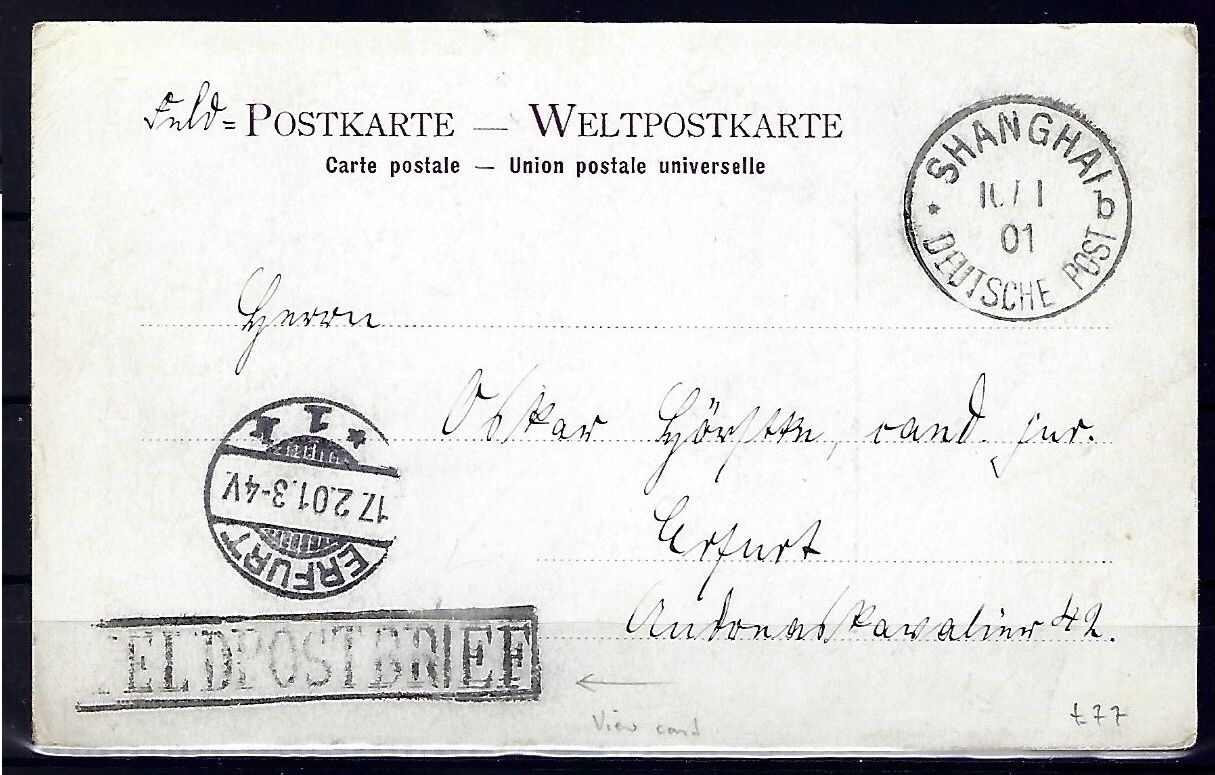 Feld= POSTKARTE — WELTPOSTKARTE
Carte postale — Union postale universelle
SHANGHAI b
01
* DEUTSCHE POST
Herrn
Oskar cand. jur.
Erfurt
Andreaskavalier 42.
* 1 *
17.2.01.3-4V.
ERFURT
FELDPOSTBRIEF
View card
£77